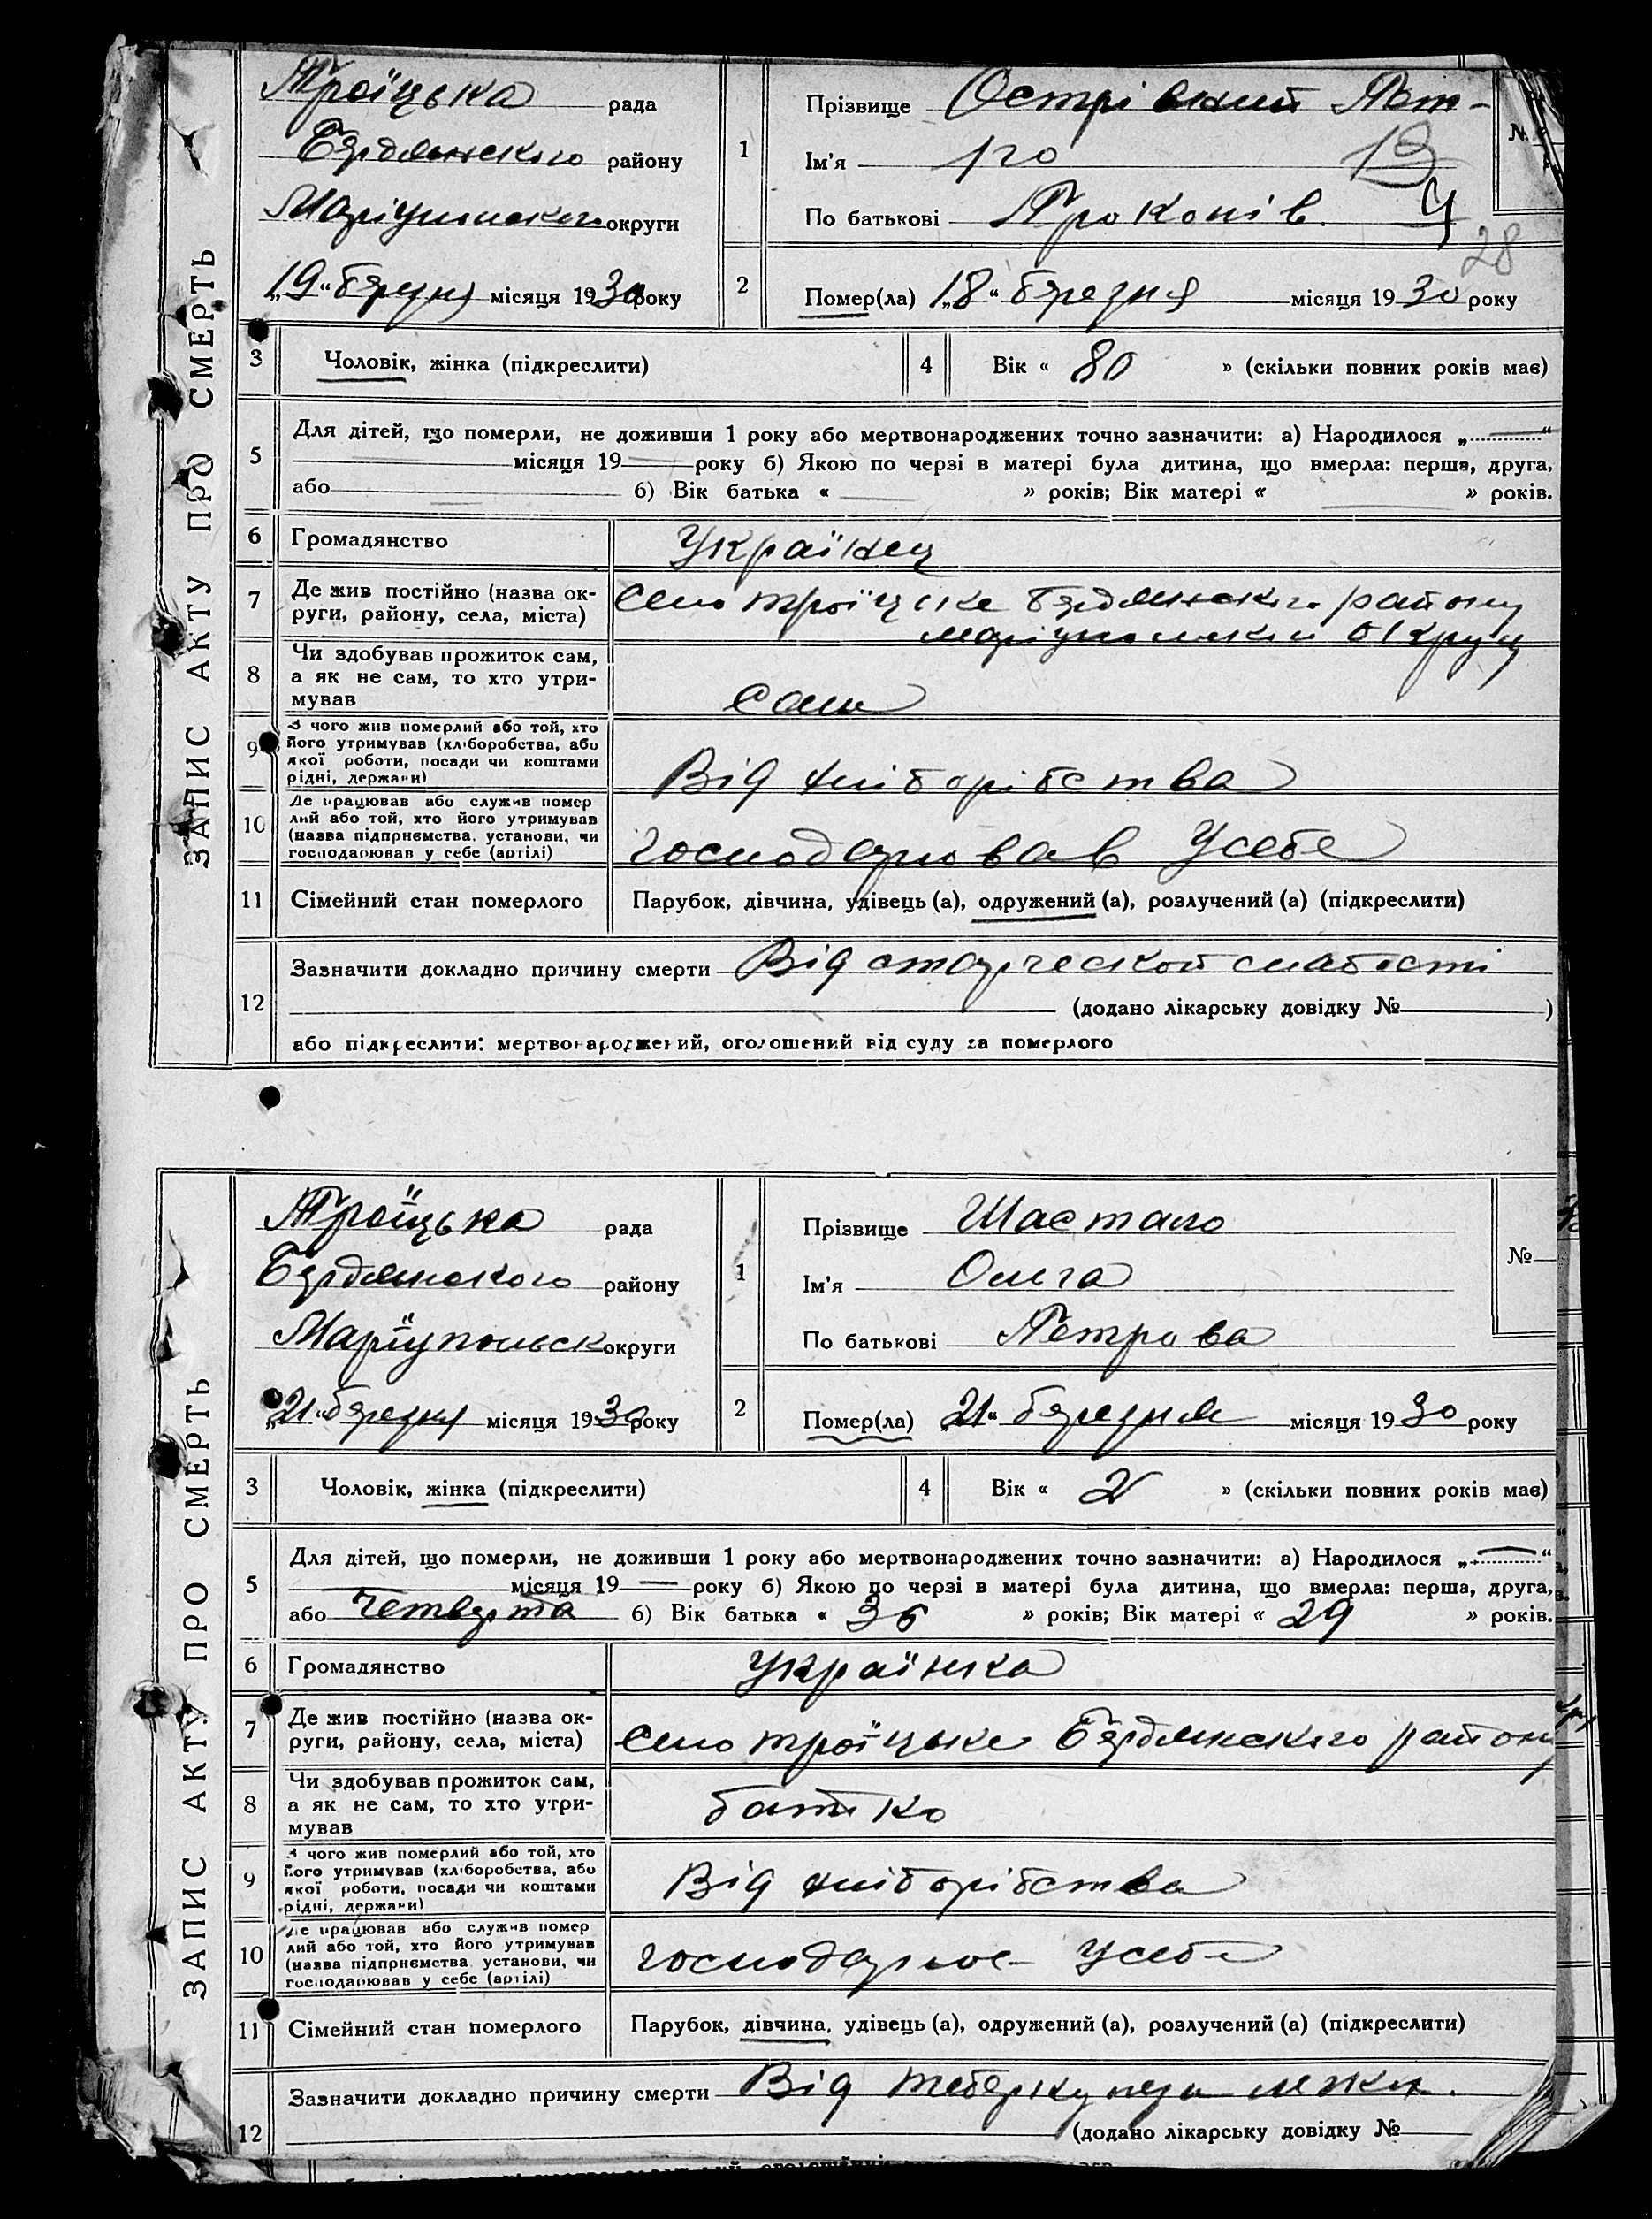 ЗАПИС АКТУ ПРО СМЕРТЬ
Троїцька рада
Бердянского району
Маріупольского округи
„19“ березня місяця 1930 року
1
Прізвище Острівний Пет-
Ім'я ро
13
По батькові Прокопів.
28
№
2
Помер(ла) „18“ березня місяця 1930 року
3 Чоловік, жінка (підкреслити)
4 Вік « 80 » (скільки повних років має)
5 Для дітей, що померли, не доживши 1 року або мертвонароджених точно зазначити: а) Народилося „ “
місяця 19 року б) Якою по черзі в матері була дитина, що вмерла: перша, друга,
або б) Вік батька « » років; Вік матері « » років.
6 Громадянство Українец
7 Де жив постійно (назва ок-
руги, району, села, міста)
Село троїцке бердянского району
маріупольскои округи
8 Чи здобував прожиток сам,
а як не сам, то хто утри-
мував
сам
9 З чого жив померлий або той, хто
його утримував (хліборобства, або
якої роботи, посади чи коштами
рідні, держави)
Від хліборібства
10 Де працював або служив помер
лий або той, хто його утримував
(назва підприємства, установи, чи
господарював у себе (артілі)
господарював Усебе
11 Сімейний стан померлого Парубок, дівчина, удівець (а), одружений (а), розлучений (а) (підкреслити)
12 Зазначити докладно причину смерти Від старческой слабости
(додано лікарську довідку № )
або підкреслити: мертвонароджений, оголошений від суду за померлого
ЗАПИС АКТУ ПРО СМЕРТЬ
Троїцька рада
Бердянского району
Маріупольск округи
„21“ березня місяця 1930 року
1
Прізвище Шастало
Ім'я Ольга
По батькові Петрова
№
2
Помер(ла) „21“ березня місяця 1930 року
3 Чоловік, жінка (підкреслити)
4 Вік « 2 » (скільки повних років має)
5 Для дітей, що померли, не доживши 1 року або мертвонароджених точно зазначити: а) Народилося „ “
місяця 19 року б) Якою по черзі в матері була дитина, що вмерла: перша, друга,
або четверта б) Вік батька « 36 » років; Вік матері « 29 » років.
6 Громадянство Українка
7 Де жив постійно (назва ок-
руги, району, села, міста)
Село троїцьке Бердянского району
8 Чи здобував прожиток сам,
а як не сам, то хто утри-
мував
батько
9 З чого жив померлий або той, хто
його утримував (хліборобства, або
якої роботи, посади чи коштами
рідні, держави)
Від хліборібства
10 Де працював або служив помер
лий або той, хто його утримував
(назва підприємства, установи, чи
господарював у себе (артілі)
господарює Усебе
11 Сімейний стан померлого Парубок, дівчина, удівець (а), одружений (а), розлучений (а) (підкреслити)
12 Зазначити докладно причину смерти Від
(додано лікарську довідку №